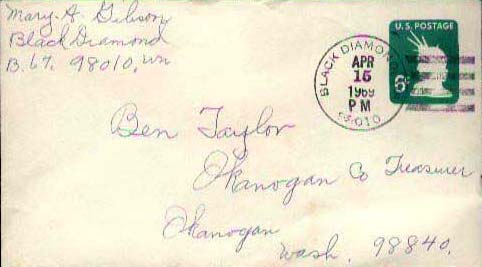 Mary A. Gibson
Black Diamond
B. 67. 98010, Wn
U.S. POSTAGE
6¢
BLACK DIAMOND
APR
15
1969
PM
98010
Ben Taylor
Okanogan Co Treasurer
Okanogan
Wash. 98840.